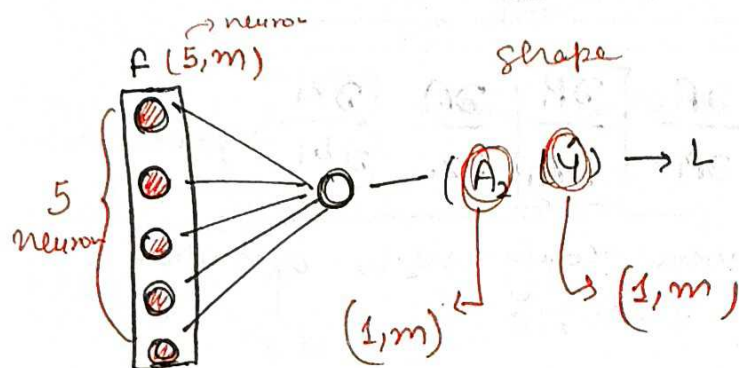 neuron
f (5, m)
shape
5
neuron
(A₂ Ý) → L
(1, m)
(1, m)